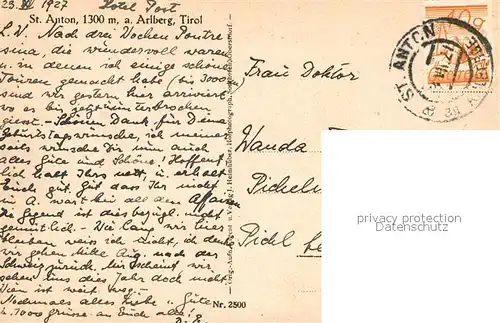 23. VII 1927 Hotel Post
St. Anton, 1300 m, a. Arlberg, Tirol
L. V. Nach drei Wochen Pontre
sina, die wundervoll waren
u. in denen ich einige schöne
Touren gemacht habe (bis 3000 m)
sind wir gestern hier arriviert
wo es bis jetzt ununterbrochen
giesst. Schönen Dank für Deine
Geburtstagwünsche, ich meiner
seits wünsche Dir nun auch
alles Gute und Schöne! Hoffent
lich habt Ihrs nett, u. erholt
Euch gut. Gut dass Ihr nicht
in A. wart bei all den Affairen
die Gegend ist dies bezügl. nicht
gemütlich. Wie lang wir hier
bleiben weiss ich nicht, ich denke
wir gehen Mitte Aug. nach der
Schweiz zurück. Mir scheint wir
sehen uns dies Jahr doch nicht
Wien ist weit weg.
Nochmals alles Liebe u. Gute
u. 1000 grüsse an Euch alle!
Frau Doktor
Wanda
Pichl
ST. ANTON
privacy protection
Datenschutz
Nr. 2500